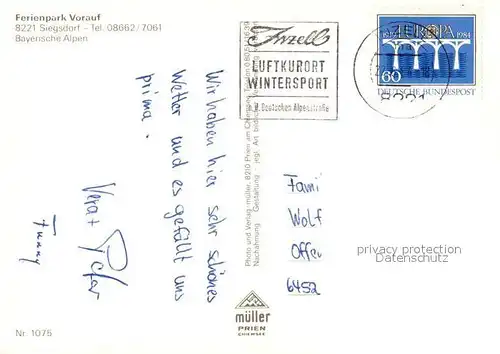 Ferienpark Vorauf
8221 Siegsdorf – Tel. 08662/7061
Bayerische Alpen
Wir haben hier sehr schönes
Wetter und es gefällt uns
prima.
Vera + Peter
Funny
Nr. 1075
Inzell
LUFTKURORT
WINTERSPORT
a.d. Deutschen Alpenstraße
EUROPA
1984
60
DEUTSCHE BUNDESPOST
8221
Foto und Verlag müller, 8210 Prien am Chiemsee
Nachahmung
Gestaltung
müller
PRIEN
CHIEMSEE
Fami
Wolf
Offen
6452
privacy protection
Datenschutz